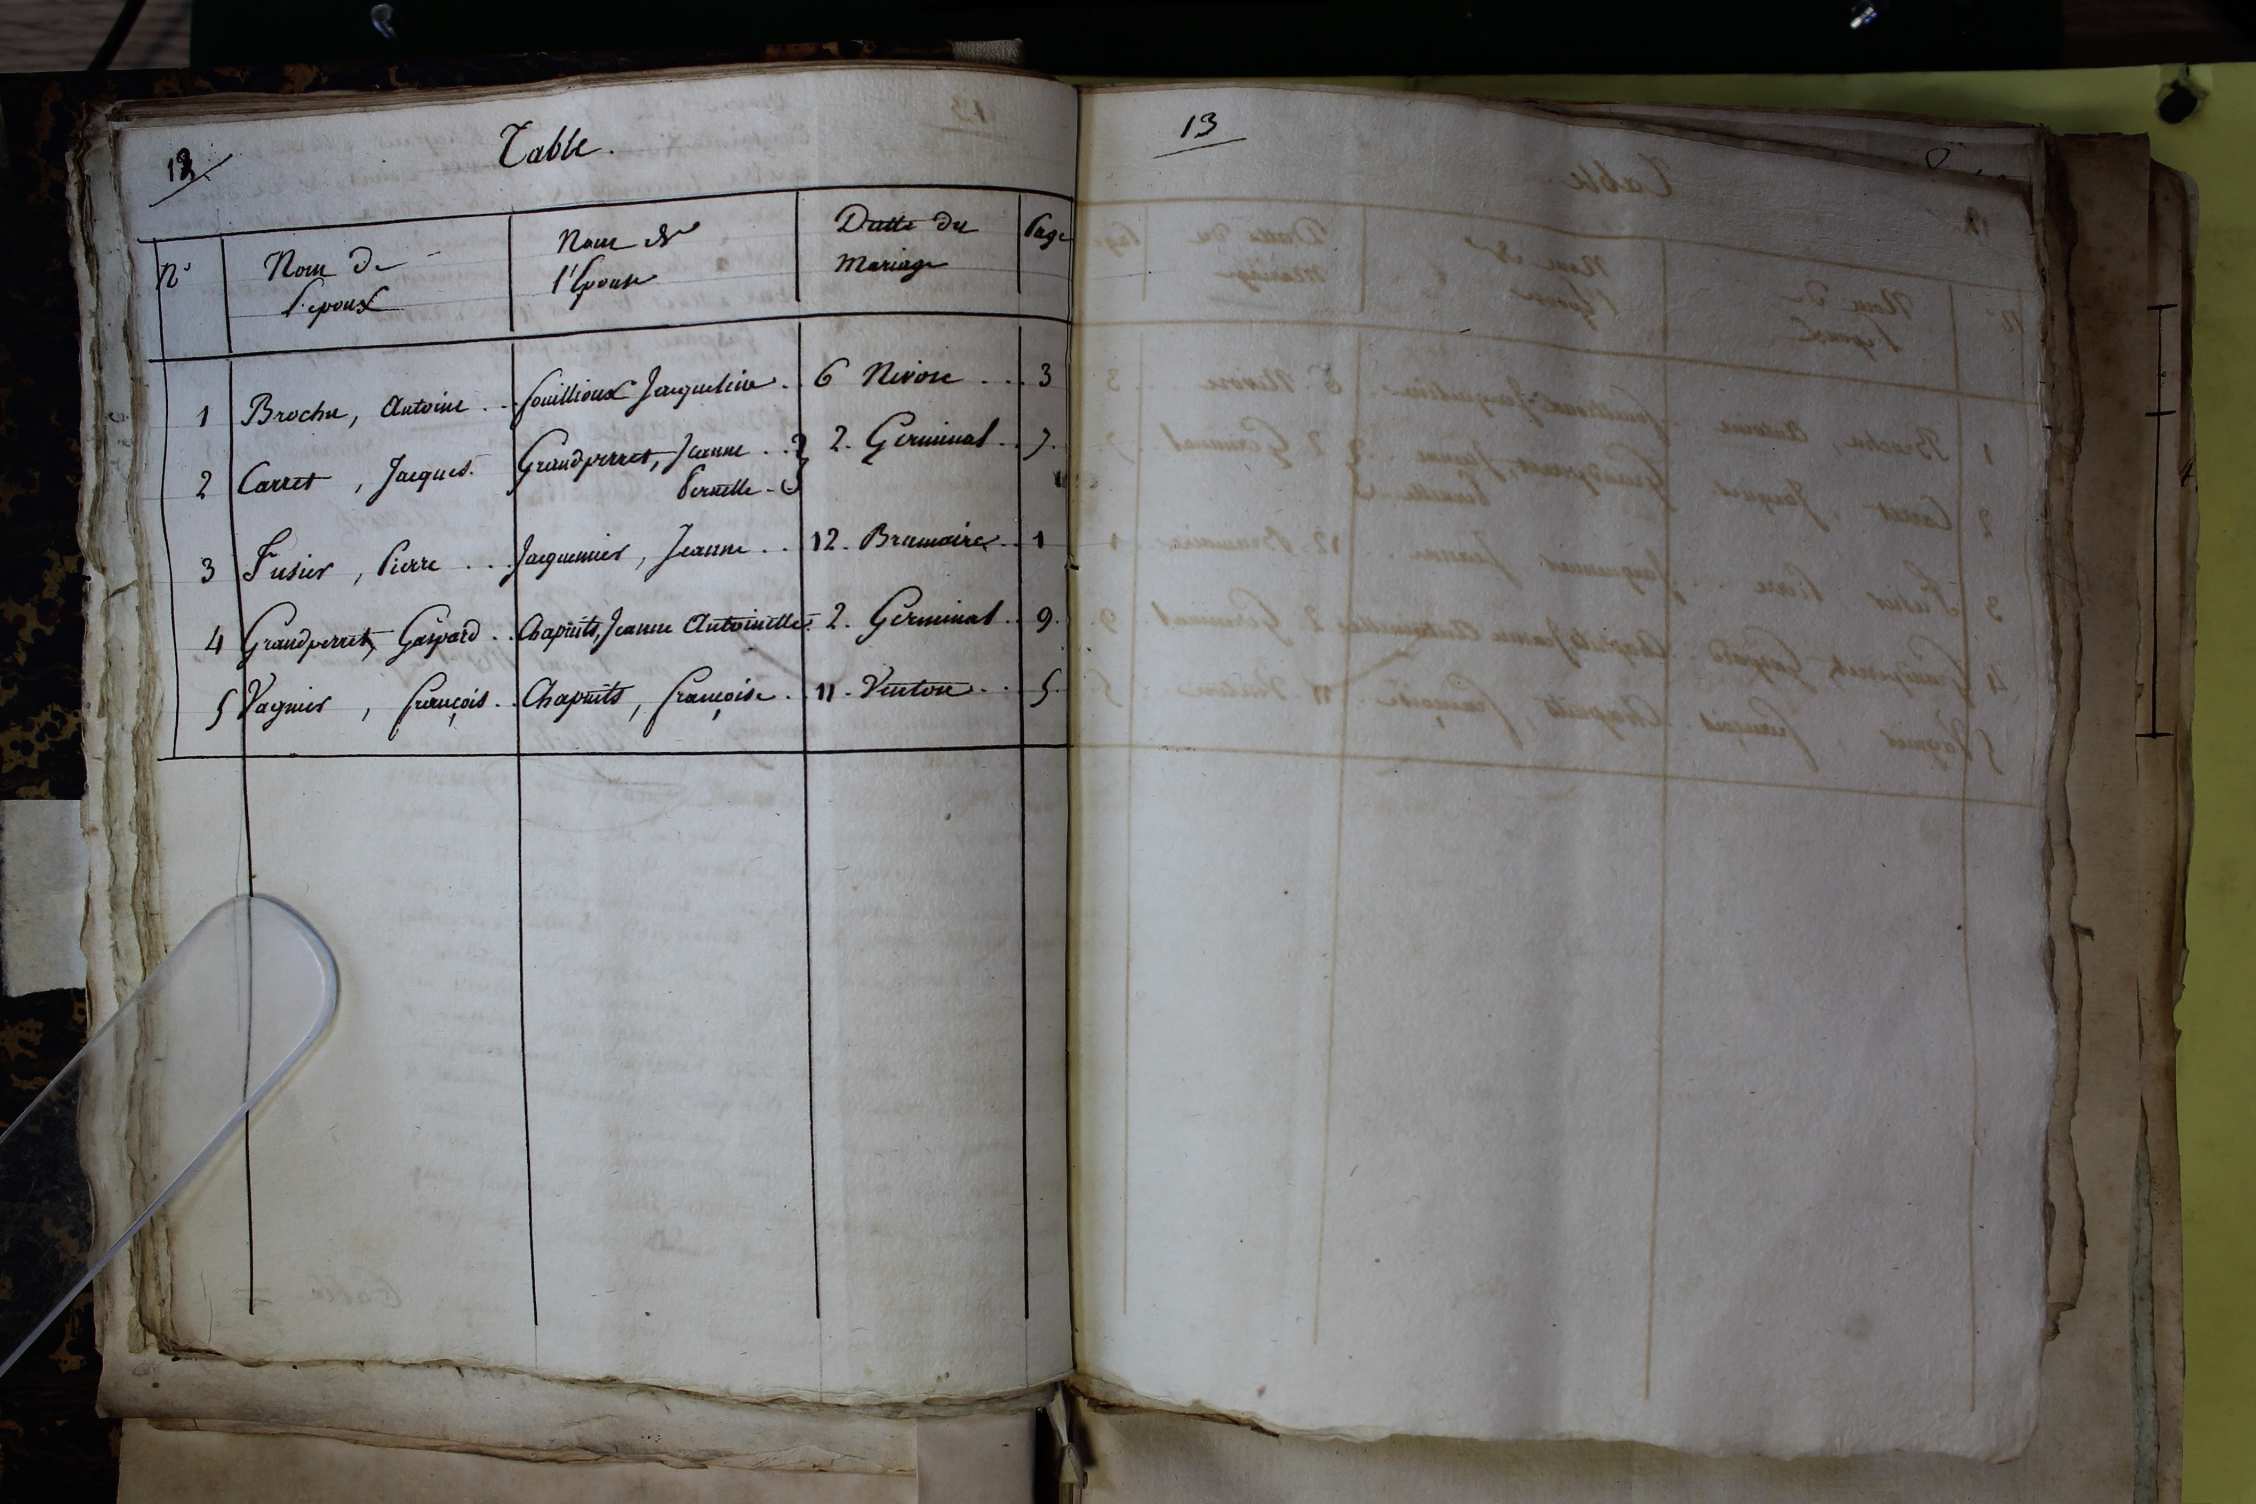 12
Table.
N° Nom de l'epoux Nom de l'Epouse Datte du Mariage Page
1 Broche, Antoine .. fouillioux Jacqueline . 6 Nivose ... 3
2 Carret, Jacques. Grandperret, Jeanne .. 2. Germinal .. 7.
Pernette
3 Fusier, Pierre ... Jacquemier, Jeanne .. 12. Brumaire .. 1
4 Grandperret, Gaspard .. Chapuits, Jeanne Antoinette . 2. Germinal . 9.
5 Vagnier, françois .. Chapuits, françoise . 11. Ventose .. 5.
13